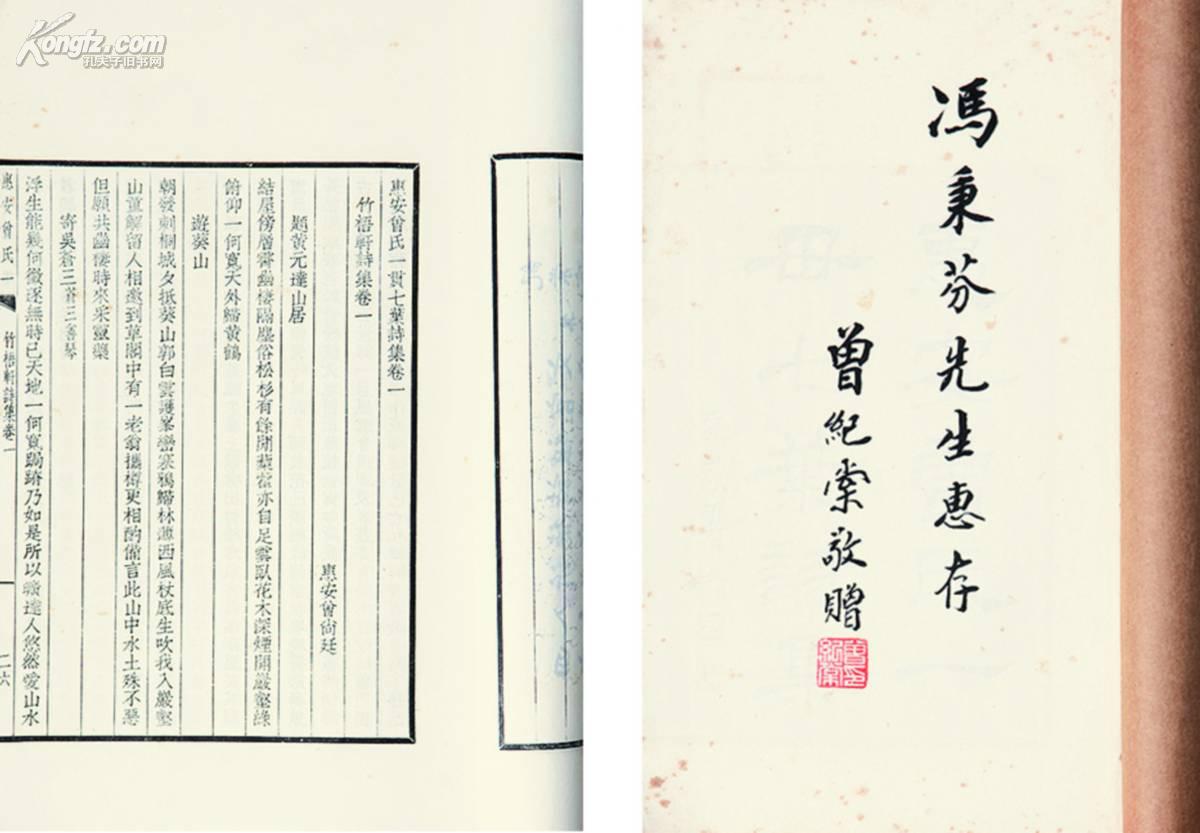 Kongfz.com
孔夫子旧书网
惠安曾氏一貫七葉詩集卷一
竹梧軒詩集卷一
惠安曾尙廷
題黃元達山居
結屋傍層霄幽棲隔塵俗松杉有餘閒藜藿亦自足雲臥花木深煙開巖壑綠
俯仰一何寬天外歸黃鶴
遊葵山
朝發刺桐城夕抵葵山郭白雲護峯巒寒鴉歸林薄西風杖底生吹我入巖壑
山童解留人相邀到草閣中有一老翁攜樽更相酌備言此山中水土殊不惡
但願共幽棲時來采靈藥
寄吳蒼三
浮生能幾何徵逐無時已天地一何寬跼蹐乃如是所以曠達人悠然愛山水
惠安曾氏一
竹梧軒詩集卷一
二六
馮秉芬先生惠存
曾紀棠敬贈